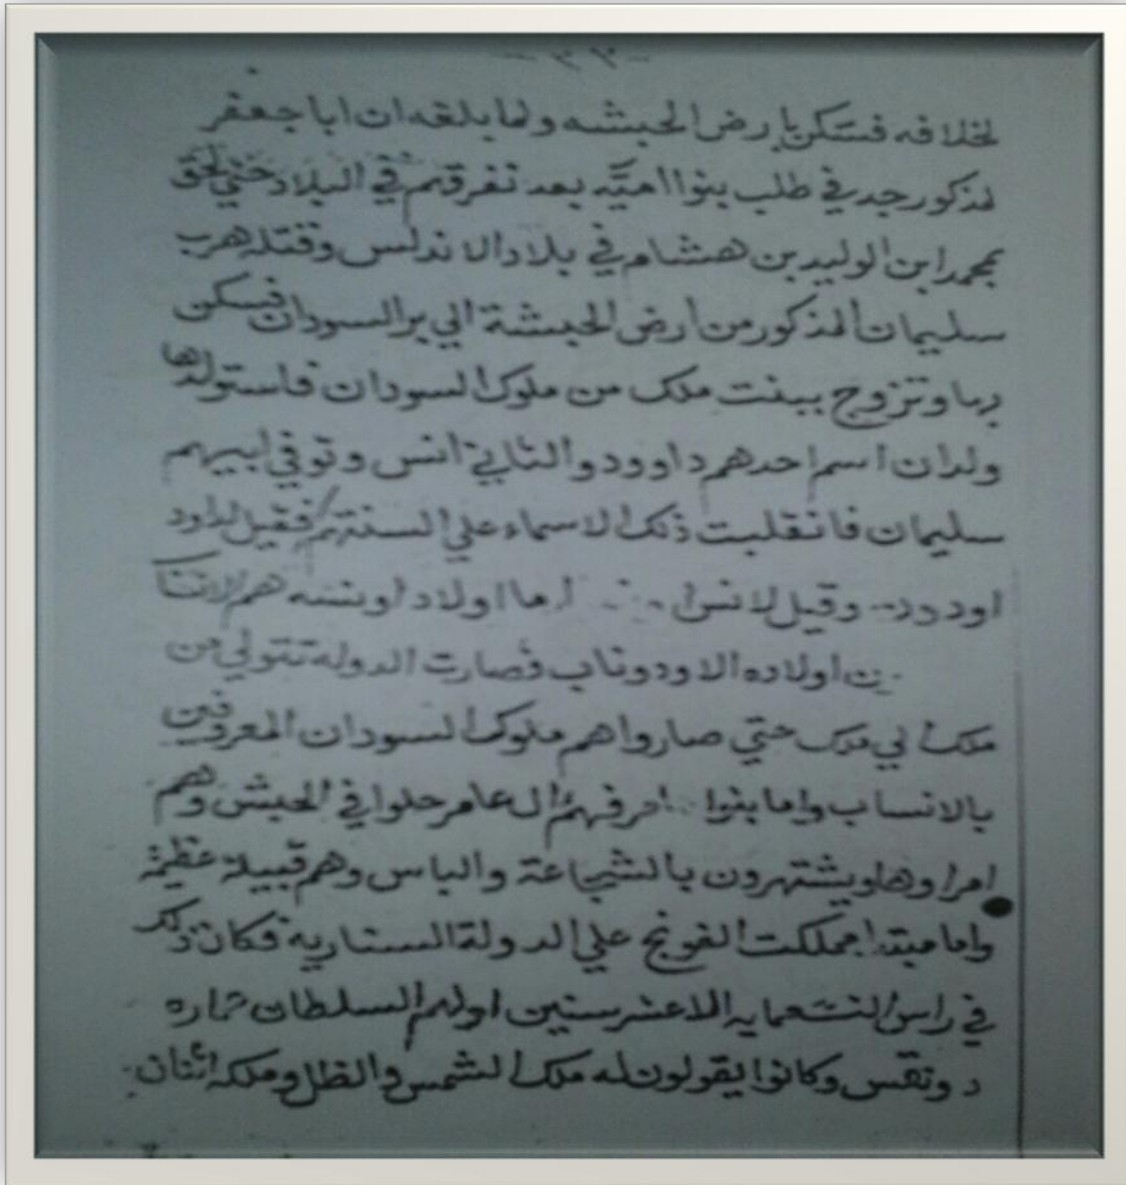 -٣٣-
لخلافه فسكن بارض الحبشه ولما بلغه ان ابا جعفر
لمذكور جد في طلب بنوا اميّه بعد تفرقهم في البلاد حتي لحق
بمحمد ابن الوليد بن هشام في بلاد الاندلس وقتله هرب
سليمان المذكور من أرض الحبشة الي بر السودان فسكن
بها وتزوج ببنت ملك من ملوك السودان فاستولدها
ولدان اسم احدهم داوود والثاني انس وتوفي ابيهم
سليمان فانقلبت ذلك الاسماء علي السنتهم فقيل لداود
اودود وقيل لانس اما اولاد اونسه هم
اولاده الاودوناب فصارت الدوله تتولي من
ملك الي ملك حتي صاروا هم ملوك السودان المعروفين
بالانساب واما بنوا عامر حلوا في الحبش وهم
امراوها ويشتهرون بالشجاعة والباس وهم قبيلة عظيمة
واما مبتدا مملكت الفونج علي الدولة السناريه فكان ذلك
في راس التسعمايه الاعشر سنين اولهم السلطان عماره
دونقس وكانوا يقولون له ملك الشمس والظل وملكه اثنان